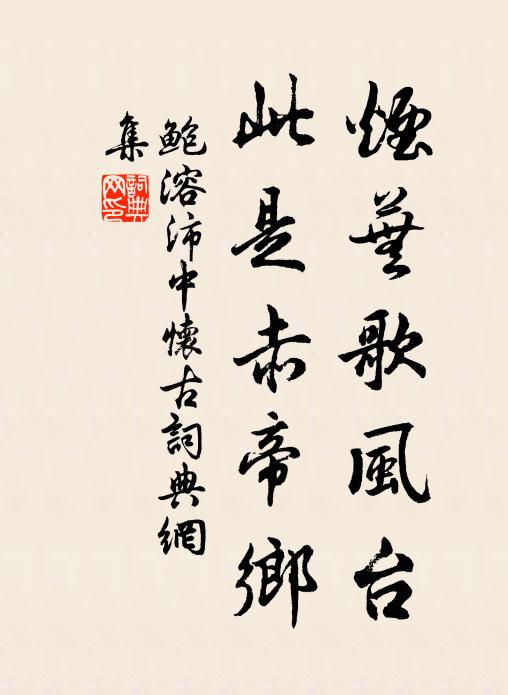 煙蕪歌風台
此是赤帝鄉
鮑溶沛中懷古詞典網
集
詞典
网印